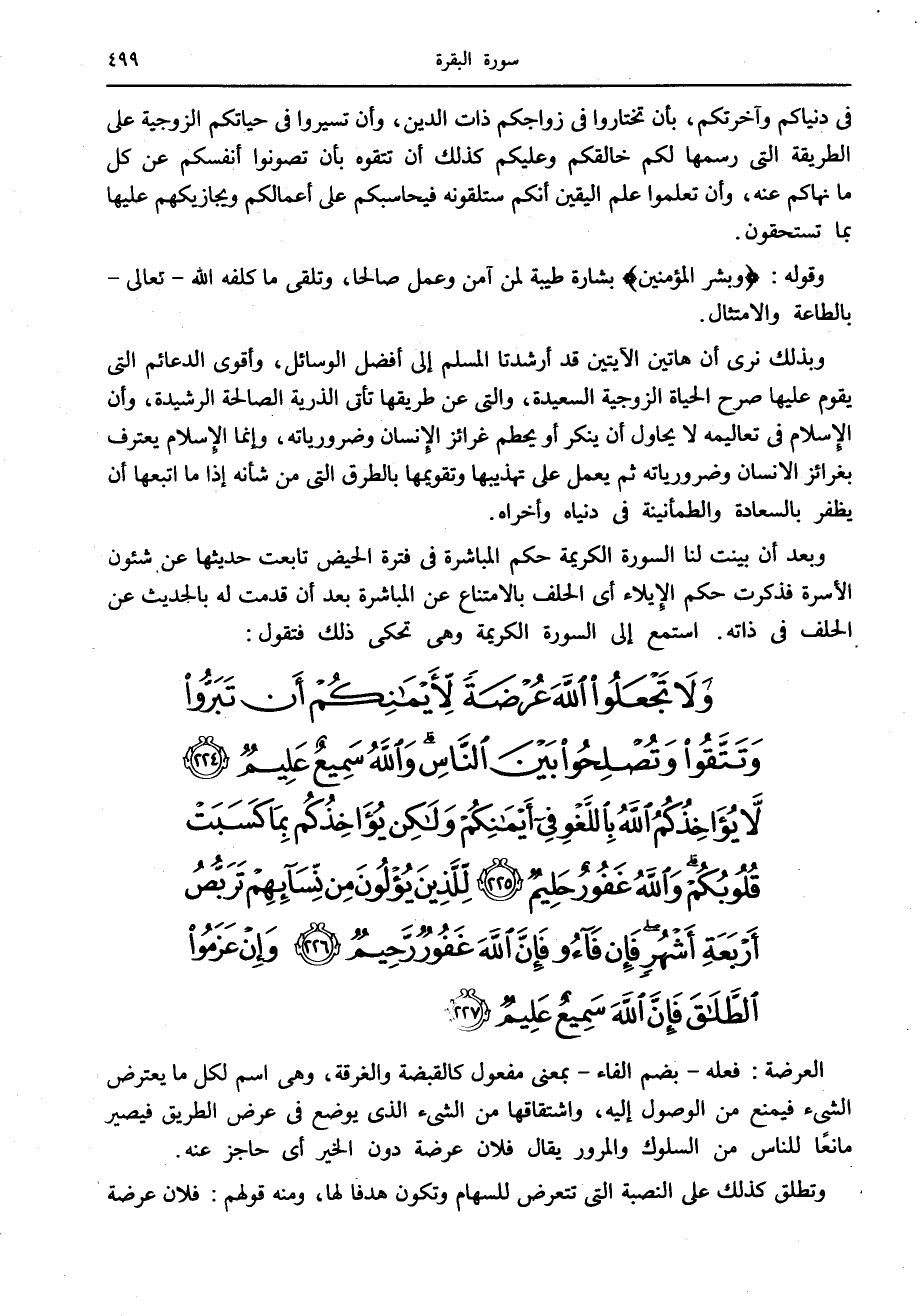 سورة البقرة ٤٩٩
فى دنياكم وآخرتكم، بأن تختاروا فى زواجكم ذات الدين، وأن تسيروا فى حياتكم الزوجية على
الطريقة التى رسمها لكم خالقكم وعليكم كذلك أن تتقوه بأن تصونوا أنفسكم عن كل
ما نهاكم عنه، وأن تعلموا علم اليقين أنكم ستلقونه فيحاسبكم على أعمالكم ويجازيكهم عليها
بما تستحقون.
وقوله : ﴿وبشر المؤمنين﴾ بشارة طيبة لمن آمن وعمل صالحا، وتلقى ما كلفه الله – تعالى –
بالطاعة والامتثال.
وبذلك نرى أن هاتين الآيتين قد أرشدتا المسلم إلى أفضل الوسائل، وأقوى الدعائم التى
يقوم عليها صرح الحياة الزوجية السعيدة، والتى عن طريقها تأتى الذرية الصالحة الرشيدة، وأن
الإسلام فى تعاليمه لا يحاول أن ينكر أو يحطم غرائز الإنسان وضرورياته، وإنما الإسلام يعترف
بغرائز الانسان وضرورياته ثم يعمل على تهذيبها وتقويمها بالطرق التى من شأنه إذا ما اتبعها أن
يظفر بالسعادة والطمأنينة فى دنياه وأخراه.
وبعد أن بينت لنا السورة الكريمة حكم المباشرة فى فترة الحيض تابعت حديثها عن شئون
الأسرة فذكرت حكم الإيلاء أى الحلف بالامتناع عن المباشرة بعد أن قدمت له بالحديث عن
الحلف فى ذاته. استمع إلى السورة الكريمة وهى تحكى ذلك فتقول :
وَلَا تَجْعَلُوا۟ ٱللَّهَ عُرْضَةً لِّأَيْمَـٰنِكُمْ أَن تَبَرُّوا۟
وَتَتَّقُوا۟ وَتُصْلِحُوا۟ بَيْنَ ٱلنَّاسِ ۗ وَٱللَّهُ سَمِيعٌ عَلِيمٌ ﴿٢٢٤﴾
لَّا يُؤَاخِذُكُمُ ٱللَّهُ بِٱللَّغْوِ فِىٓ أَيْمَـٰنِكُمْ وَلَـٰكِن يُؤَاخِذُكُم بِمَا كَسَبَتْ
قُلُوبُكُمْ ۗ وَٱللَّهُ غَفُورٌ حَلِيمٌ ﴿٢٢٥﴾ لِّلَّذِينَ يُؤْلُونَ مِن نِّسَآئِهِمْ تَرَبُّصُ
أَرْبَعَةِ أَشْهُرٍ ۖ فَإِن فَآءُو فَإِنَّ ٱللَّهَ غَفُورٌ رَّحِيمٌ ﴿٢٢٦﴾ وَإِنْ عَزَمُوا۟
ٱلطَّلَـٰقَ فَإِنَّ ٱللَّهَ سَمِيعٌ عَلِيمٌ ﴿٢٢٧﴾
العرضة : فعله – بضم الفاء – بمعنى مفعول كالقبضة والغرقة، وهى اسم لكل ما يعترض
الشىء فيمنع من الوصول إليه، واشتقاقها من الشىء الذى يوضع فى عرض الطريق فيصير
مانعًا للناس من السلوك والمرور يقال فلان عرضة دون الخير أى حاجز عنه.
وتطلق كذلك على النصبة التى تتعرض للسهام وتكون هدفا لها، ومنه قولهم : فلان عرضة